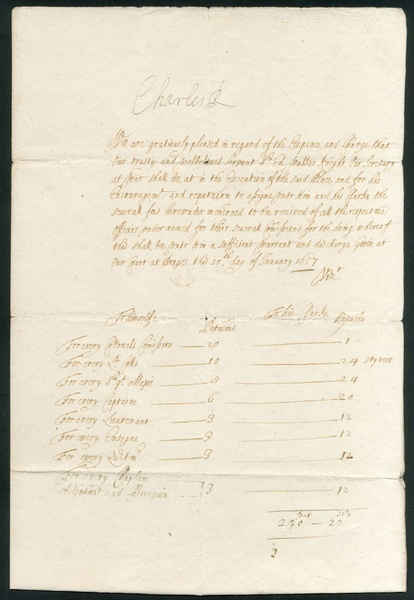 Charles R
Wee are gratiously pleased in regard of the Expence and Charge that
Our trusty and welbeloved Servant Sr Ed. Walker Knight Our Secretary
at Warr shall be at in the Execution of the said Place and for his
Encouragemt and reputation to assigne unto him and his Clarke the
severall fees hereunder mencioned to be received of all the respective
officers under named for their severall Comissions for the doing whereof
this shall be unto him a sufficient warrant and discharge given at
Our Court at Bruges this 10th day of January 1657
To himselfe To his Clarke
Patacons Patacon
For every Colonels Comission 20 1
For every Lt Collo 10 24 styvers
For every Sergt Major 8 24
For every Captaine 6 20
For every Lieutenant 3 12
For every Ensigne 3 12
For every Quartmr 3 12
For every Chaplin
Adjutant and 3 12
Pat Sti
240 — 20